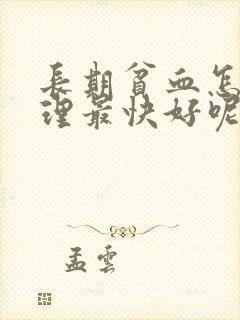 長期貧血怎
理最快好呢
孟雲